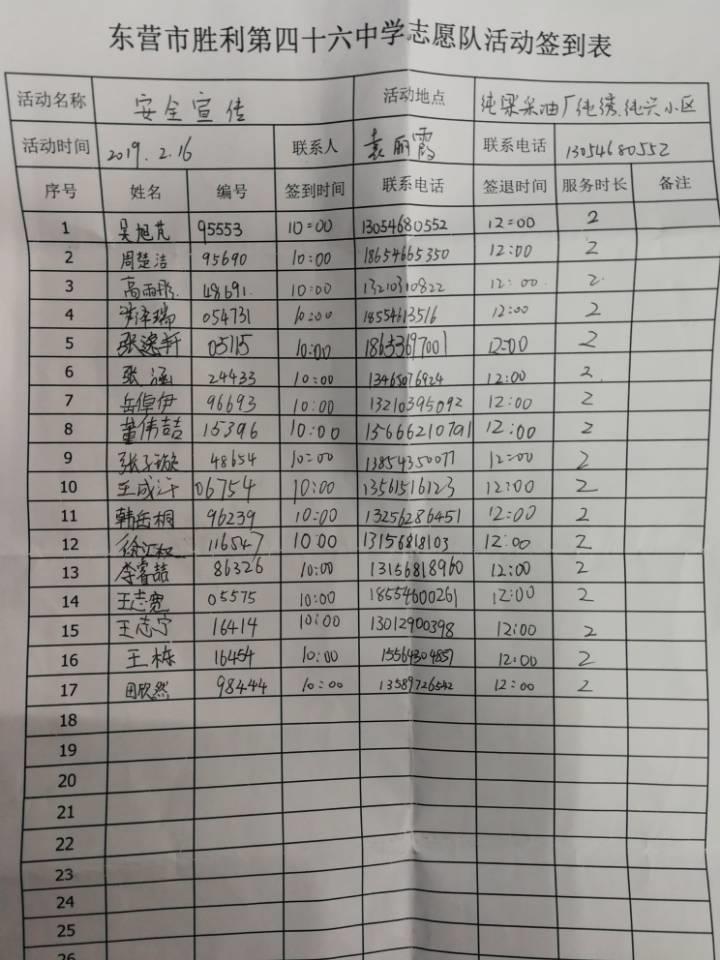 东营市胜利第四十六中学志愿队活动签到表
活动名称 安全宣传 活动地点 纯梁采油厂纯绣、纯兴小区
活动时间 2019.2.16 联系人 袁丽霞 联系电话 13054680552
序号 姓名 编号 签到时间 联系电话 签退时间 服务时长 备注
1 吴旭芃 95553 10:00 13054680552 12:00 2
2 周楚洁 95690 10:00 18654665350 12:00 2
3 高雨彤 48691 10:00 13210310822 12:00 2
4 泽瑞 054731 10:00 18554613516 12:00 2
5 张逸轩 05115 10:00 18653697001 12:00 2
6 张涵 24433 10:00 13465076924 12:00 2
7 岳倬伊 96693 10:00 13210395092 12:00 2
8 董伟喆 15396 10:00 15666210701 12:00 2
9 张子璇 48654 10:00 13854350077 12:00 2
10 王成 06754 10:00 13561516123 12:00 2
11 韩岳桐 96239 10:00 13256286451 12:00 2
12 徐汇 116547 10:00 13156818103 12:00 2
13 李睿喆 86326 10:00 13156818960 12:00 2
14 王志宽 05575 10:00 18554600261 12:00 2
15 王志宁 16414 10:00 13012900398 12:00 2
16 王栋 16454 10:00 15564304857 12:00 2
17 田欣然 98444 10:00 13589726542 12:00 2
18
19
20
21
22
23
24
25
26